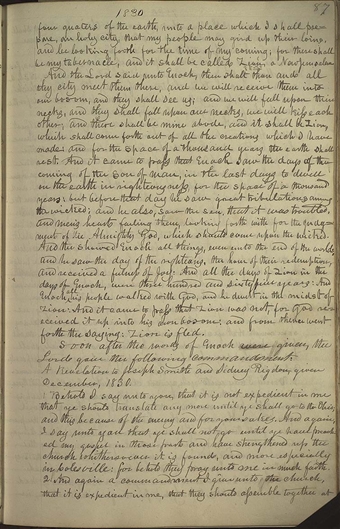 1830
87
four quaters of the earth, unto a place which I shall pre-
pare, an holy city, that my people may gird up their loins,
and be looking forth for the time of my coming; for there shall
be my tabernacle, and it shall be called Zion; a New Jerusalem.
And the Lord said unto Enoch, then shalt thou and all
thy city meet them there, and we will receive them into
our bosom, and they shall see us; and we will fall upon their
necks, and they shall fall upon our necks, we will kiss each
other; and there shall be mine abode, and it shall be Zion,
which shall come forth out of all the creations which I have
made: and for the space of a thousand years the earth shall
rest. And it came to pass that Enoch saw the day of the
coming of the Son of man, in the last days to dwell
on the earth in righteousness, for the space of a thousand
years: but before that day he saw great tribulations among
the wicked; and he also saw the sea, that it was troubled,
and mens hearts failing them, looking forth with for the Judg-
ment of the Almighty God, which should come upon the wicked.
And the shewed Enoch all things, even unto the end of the world;
and he saw the day of the righteous, the hour of their redemption,
and received a fulness of joy: And all the days of Zion in the
days of Enoch, were three hundred and sixty five years: And
Enoch, his people walked with God, and he dwelt in the midst of
Zion: And it came to pass that Zion was not, for God re-
ceived it up unto his own bosom: and from thence went
forth the saying: Zion is fled.
Soon after the words of Enoch were given, the
Lord gave the following commandment:
A Revelation to Joseph Smith and Sidney Rigdon, given
December, 1830.
Behold I say unto you, that it is not expedient in me
that ye should translate any more until ye shall go to the Ohio;
and this because of the enemy and for your sakes. And again,
I say unto you that ye shall not go until ye have preach-
ed my gospel in those parts and have strengthened up the
church whithersoever it is found, and more especially
in Colesville: for behold they pray unto me in much faith.
2 And again a commandment I give unto the church,
that it is expedient in me, that they should assemble together at